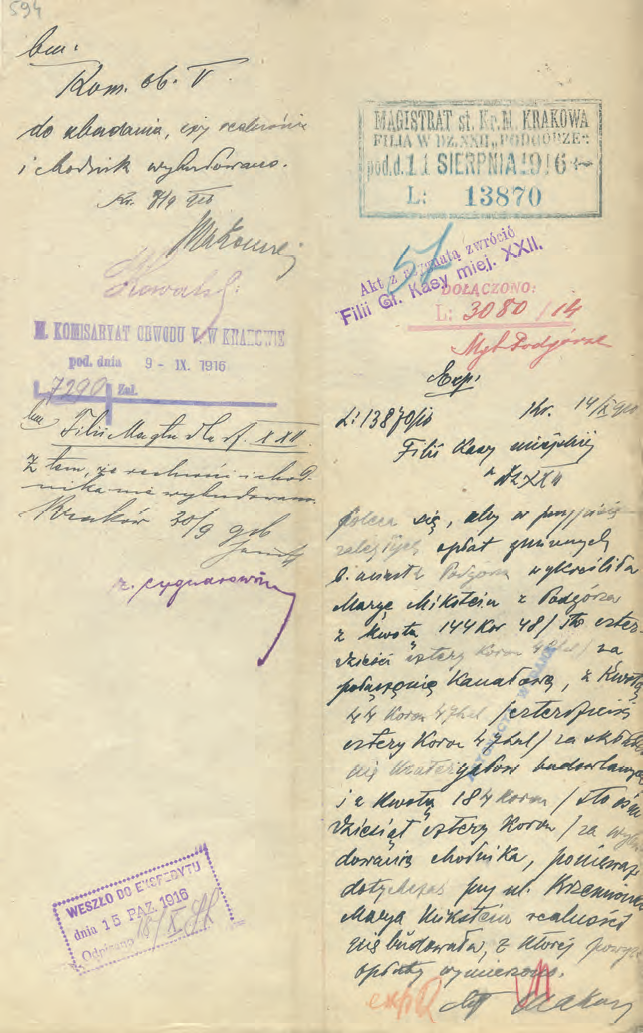 594
bm:
Kom. ob. V.
do zbadania, czy realność
i chodnik wybudowano.
Kr. 7/9 916
Kowalsk:
M. KOMISARYAT OBWODU V. W KRAKOWIE
pod. dnia 9 - IX. 1916
L. 7290 Zał.
bm Filii Magtu dla df. XXII.
Z tem, że realności i chod
nika nie wybudowano.
Kraków 30/9 916
WESZŁO DO EKSPEDYTU
dnia 15 PAZ. 1916
Odpisano 18/X
MAGISTRAT st. Kr. M. KRAKOWA
FILIA W DZ. XXII „PODGÓRZE"
pod. d. 11 SIERPNIA 1916
L: 13870
57
Akt z zwrócić
Filii Gł. Kasy miej. XXII.
DOŁĄCZONO:
L: 3080/14
Mgt Podgórze
Exp.
L: 13870/16 Kr. 14/X 916
Filii Kasy miejskiej
w Dz XXII
Poleca się, aby w przypisie
zaległych opłat gminnych
b. miasta Podgórza wykreśliła
Maryę Mikstein z Podgórza
z kwotą 144 Kor 48/ sto czter
dzieści cztery Koron 48 hal/ za
połączenie kanałowe, z kwotą
44 Koron 47 hal /czterdzieści
cztery Koron 47 hal/ za składa
nie materyałów budowlanych
i z kwotą 184 Koron / sto ośm
dziesiąt cztery Koron / za wybu
dowanie chodnika, ponieważ
dotychczas przy ul. Krzemionki
Marya Mikstein realności
nie budowała, z której powyższe
opłaty wymierzono.
exp